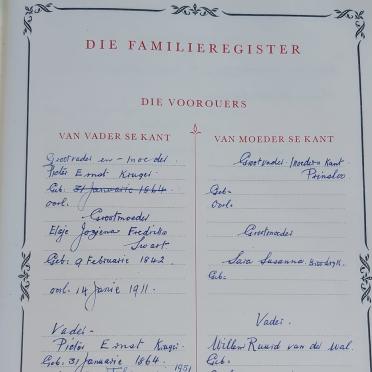 DIE FAMILIEREGISTER
DIE VOOROUERS
VAN VADER SE KANT
Grootvader en - moeder.
Pieter Ernst Kruger
Geb: 31 Januarie 1864
oorl.
Grootmoeder
Elsje Jozina Fredrika
Swart
Geb: 9 Februarie 1842
oorl. 14 Junie 1911.
Vader -
Pieter Ernst Kruger
Geb: 31 Januarie 1864.
1951
VAN MOEDER SE KANT
Grootvader: Moeders Kant
Prinsloo
Geb-
Oorl-
Grootmoeder
Sara Susanna
Geb-
Vader.
Willem Ruard van der Wal.
Geb-